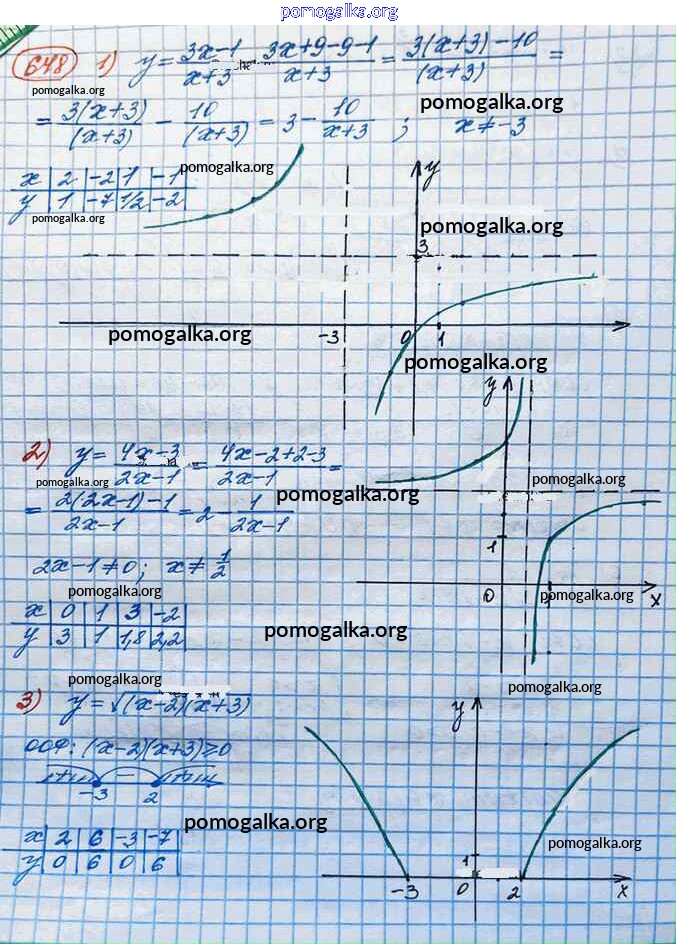 pomogalka.org
648 1) y = (3x-1)/(x+3) = (3x+9-9-1)/(x+3) = (3(x+3)-10)/(x+3) =
pomogalka.org
= (3(x+3))/(x+3) - 10/(x+3) = 3 - 10/(x+3) ; x ≠ -3
pomogalka.org
pomogalka.org
x | 2 | -2 | 1 | -1
y | 1 | -7 | 1/2 | -2
pomogalka.org
y
pomogalka.org
3
pomogalka.org
-3 0 1
pomogalka.org
2) y = (4x-3)/(2x-1) = (4x-2+2-3)/(2x-1) =
pomogalka.org
= (2(2x-1)-1)/(2x-1) = 2 - 1/(2x-1)
pomogalka.org
2x-1≠0; x ≠ 1/2
pomogalka.org
x | 0 | 1 | 3 | -2
y | 3 | 1 | 1,8 | 2,2
pomogalka.org
y
pomogalka.org
1
0 1 x
pomogalka.org
pomogalka.org
pomogalka.org
3) y = √(x-2)(x+3)
ООФ: (x-2)(x+3)≥0
-
-3 2
pomogalka.org
x | 2 | 6 | -3 | -7
y | 0 | 6 | 0 | 6
y
pomogalka.org
1
-3 0 2 x